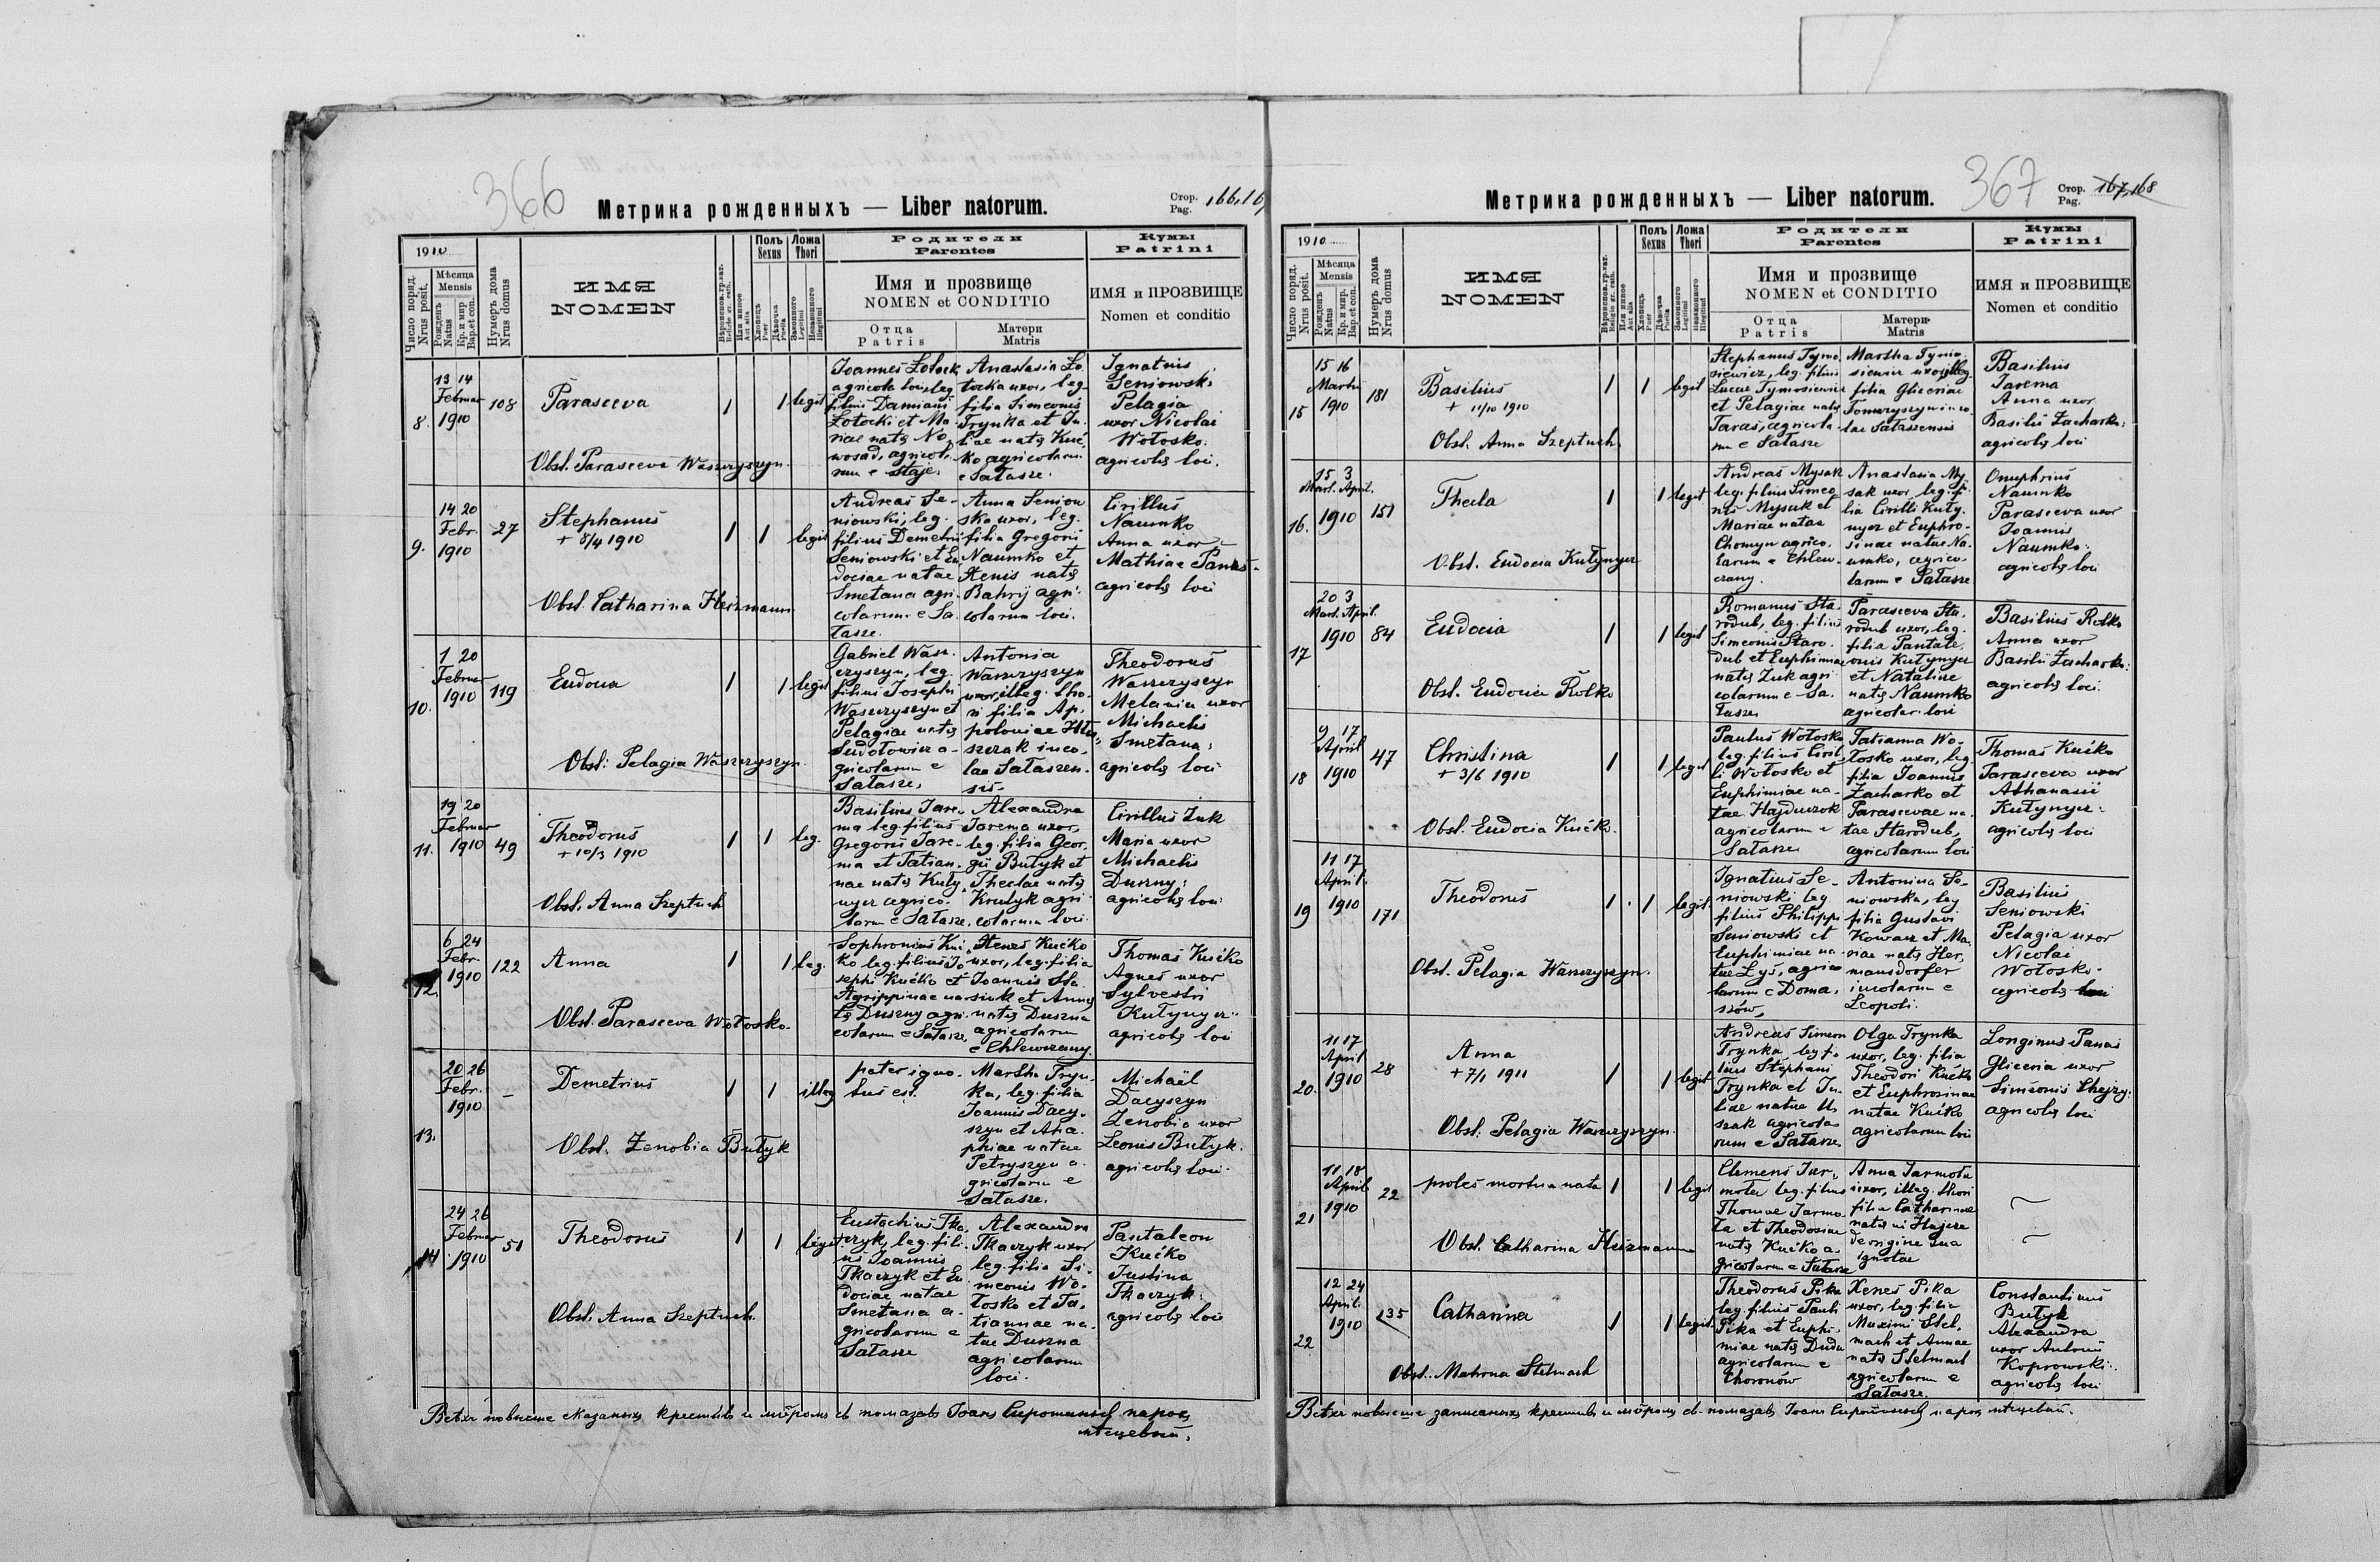 366
Метрика рожденныхъ — Liber natorum.
Стор. Pag. 166, 167
1910
Число поряд. Nrus posit.
Мѣсяца Mensis
Рожденъ Natus
Кр. и мир. Bap. et con.
Нумеръ дома Nrus domus
ИМЯ NOMEN
Полъ Sexus
Хлопецъ Puer
Дѣвочка Puella
Ложа Thori
Законного Legitimi
Незаконного Illegitimi
Родители Parentes
Имя и прозвище NOMEN et CONDITIO
Отца Patris
Матери Matris
Кумы Patrini
ИМЯ и ПРОЗВИЩЕ Nomen et conditio
8.
13 14
Februar
1910
108
Parasceva
1
1
legit
Obst. Parasceva Waszczyszyn
Joannes Łotock
agricola loci, leg
filius Damiani
Łotocki et Ma-
riae natæ No-
wosad, agricol-
rum e Staje.
Anastasia Ło-
tocka uxor, leg.
filia Simeonis
Trynka et Ju-
liae natæ Kuć-
ko agricolarum
e Sałasze.
Ignatius
Seniowski
Pelagia
uxor Nicolai
Wołosko:
agricolæ loci.
9.
14 20
Febr.
1910
27
Stephanus
+ 8/4 1910
1
1
legit
Obst. Catharina Heizmann
Andreas Se-
niowski, leg.
filius Demetrii
Seniowski et Eu-
dociae natae
Smetana agri-
colarum e Sa-
łasze.
Anna Seniow
ska uxor, leg.
filia Gregorii
Naumko et
Xenis natæ
Bahrij agri-
colarum loci.
Cirillus
Naumko
Anna uxor
Mathiae Panas
agricolæ loci
10.
1 20
Februar
1910
119
Eudocia
1
1
legit
Obst: Pelagia Waszczyszyn
Gabriel Wasz-
czyszyn, leg.
filius Josephi
Waszczyszyn et
Pelagiae natæ
Sudołowicz a-
gricolarum e
Sałasze,
Antonia
Waszczyszyn
uxor, illeg. tho-
ri filia Ap-
poloniae
szczak inco-
lae Sałaszen-
sis
Theodorus
Waszczyszyn
Melania uxor
Michaelis
Smetana:
agricolæ loci
11.
19 20
Februar
1910
49
Theodorus
+ 10/3 1910
1
1
leg.
Obst. Anna Szeptuch
Basilius Jare-
ma leg. filius
Gregorii Jare-
ma et Tatian-
nae natæ Kuty-
nyez agrico-
larum e Sałasze,
Alexandra
Jarema uxor,
leg. filia Geor-
gii Butyk et
Theclae natæ
Krutyk agri-
colarum loci.
Cirillus Zuk
Maria uxor
Michaelis
Duszny:
agricolæ loci
12.
6 24
Febr.
1910
122
Anna
1
1
leg.
Obst. Parasceva Wołosko.
Sophronius Kuć-
ko leg. filius Jo-
sephi Kućko et
Agrippinae na-
tæ Duszny agri-
colarum e Sałasze,
Xenes Kućko
uxor, leg. filia
Joannis Sta-
siuk et Annæ
natæ Duszna
agricolarum
e Chlewczany.
Thomas Kućko
Agnes uxor
Sylvestri
Kutynyez:
agricolæ loci
13.
20 26
Febr.
1910
–
Demetrius
1
1
illeg
Obst. Zenobia Butyk
pater igno-
tus est.
Martha Tryn-
ka, leg. filia
Joannis Dacy-
szyn et Aha-
phiae natae
Petryszyn a-
gricolarum e
Sałasze.
Michaël
Dacyszyn
Zenobia uxor
Leonis Butyk.
agricolæ loci.
14
24 26
Februar
1910
51
Theodorus
1
1
legit
Obst. Anna Szeptuch.
Eustachius Tka-
czyk, leg. fili-
us Joannis
Tkaczyk et Eu-
dociae natae
Smetana a-
gricolarum e
Sałasze
Alexandra
Tkaczyk uxor
leg. filia Si-
meonis Wo-
łosko et Ta-
tiannae na-
tae Duszna
agricolarum
loci.
Pantaleon
Kućko
Justina
Tkaczyk:
agricolæ loci
367
Метрика рожденныхъ — Liber natorum.
Стор. Pag. 167, 168
1910
Число поряд. Nrus posit.
Мѣсяца Mensis
Рожденъ Natus
Кр. и мир. Bap. et con.
Нумеръ дома Nrus domus
ИМЯ NOMEN
Полъ Sexus
Хлопецъ Puer
Дѣвочка Puella
Ложа Thori
Законного Legitimi
Незаконного Illegitimi
Родители Parentes
Имя и прозвище NOMEN et CONDITIO
Отца Patris
Матери Matris
Кумы Patrini
ИМЯ и ПРОЗВИЩЕ Nomen et conditio
15
15 16
Martii
1910
181
Basilius
+ 11/10 1910
1
1
legit
Obst. Anna Szeptuch
Stephanus Tymo-
siewicz, leg. filius
Lucae Tymosiewicz
et Pelagiae natæ
Taras, agricola-
rum e Sałasze
Martha Tymo-
siewicz uxor, illeg.
filia Gliceriae
Tomczyszyn inco-
lae Sałaszensis
Basilius
Jarema
Anna uxor
Basilii Zacharko:
agricolæ loci
16.
15 3
Mart. April.
1910
151
Thecla
1
1
legit
Obst. Eudocia Kutynyez
Andreas Mysak
leg. filius Simeo-
nis Mysak et
Mariae natae
Chomyn agrico-
larum e Chlew-
czany.
Anastasia My-
sak uxor, leg. fi-
lia Cirilli Kuty-
nyez et Euphro-
sinae natae Na-
umko, agrico-
larum e Sałasze
Onuphrius
Naumko
Parasceva uxor
Joannis
Naumko:
agricolæ loci
17
20 3
Mart. April.
1910
84
Eudocia
1
1
legit
Obst. Eudocia Rolko
Romanus Sta-
rodub, leg. filius
Simeonis Staro-
dub et Euphimiae
natæ Zuk agri-
colarum e Sa-
łasze
Parasceva Sta-
rodub uxor, leg.
filia Pantale-
onis Kutynyez
et Nataliae
natæ Naumko
agricolar. loci
Basilius Rolko
Anna uxor
Basilii Zacharko:
agricolæ loci.
18
9 17
April
1910
47
Christina
+ 3/6 1910
1
1
legit
Obst. Eudocia Kućko.
Paulus Wołosko
leg. filius Ciril-
li Wołosko et
Euphimiae na-
tae Hajduczok
agricolarum e
Sałasze
Tatianna Wo-
łosko uxor, leg.
filia Joannis
Zacharko et
Parascevae na-
tae Starodub,
agricolarum loci
Thomas Kućko
Parasceva uxor
Athanasii
Kutynyez:
agricolæ loci
19
11 17
April.
1910
171
Theodorus
1
1
legit.
Obst. Pelagia Waszczyszyn.
Ignatius Se-
niowski leg
filius Philippi
Seniowski et
Euphimiae na-
tae Łyś, agrico-
larum e Doma-
szów,
Antonina Se-
niowska, leg
filia Gustavi
Kowacz et Ma-
riae natæ Her-
mansdorfer
incolarum e
Leopoli.
Basilius
Seniowski
Pelagia uxor
Nicolai
Wołosko.
agricolæ loci
20.
11 17
April
1910
28
Anna
+ 7/1 1911
1
1
legit
Obst: Pelagia Waszczyszyn.
Andreas Simeon
Trynka, leg. fi-
lius Stephani
Trynka et Ju-
liae natae Us
szak agricola-
rum e Sałasze
Olga Trynka
uxor, leg. filia
Theodori Kućko
et Euphrosinae
natae Kućko
agricolarum loci
Longinus Panas
Gliceria uxor
Simeonis
agricolæ loci
21
11 18
April
1910
22
proles mortua nata
1
1
legit
Obst. Catharina Heizmann
Clemens Jar-
mola leg. filius
Thomae Jarmo-
la et Theodosiae
natæ Kućko a-
gricolarum e Sałasze
Anna Jarmola
uxor, illeg. thori
filia Catharinae
de origine sua
ignotae
22
12 24
April.
1910
235
Catharina
1
1
legit.
Obst. Matrona Stelmach
Theodorus Pika
leg. filius Pauli
Pika et Euphi-
miae natæ Duda
agricolarum e
Choronów
Xenes Pika
uxor, leg. filia
Maximi Stel-
mach et Annae
natæ Stelmach
agricolarum e
Sałasze.
Constantinus
Butyk
Alexandra
uxor Antonii
Koprowski:
agricolæ loci